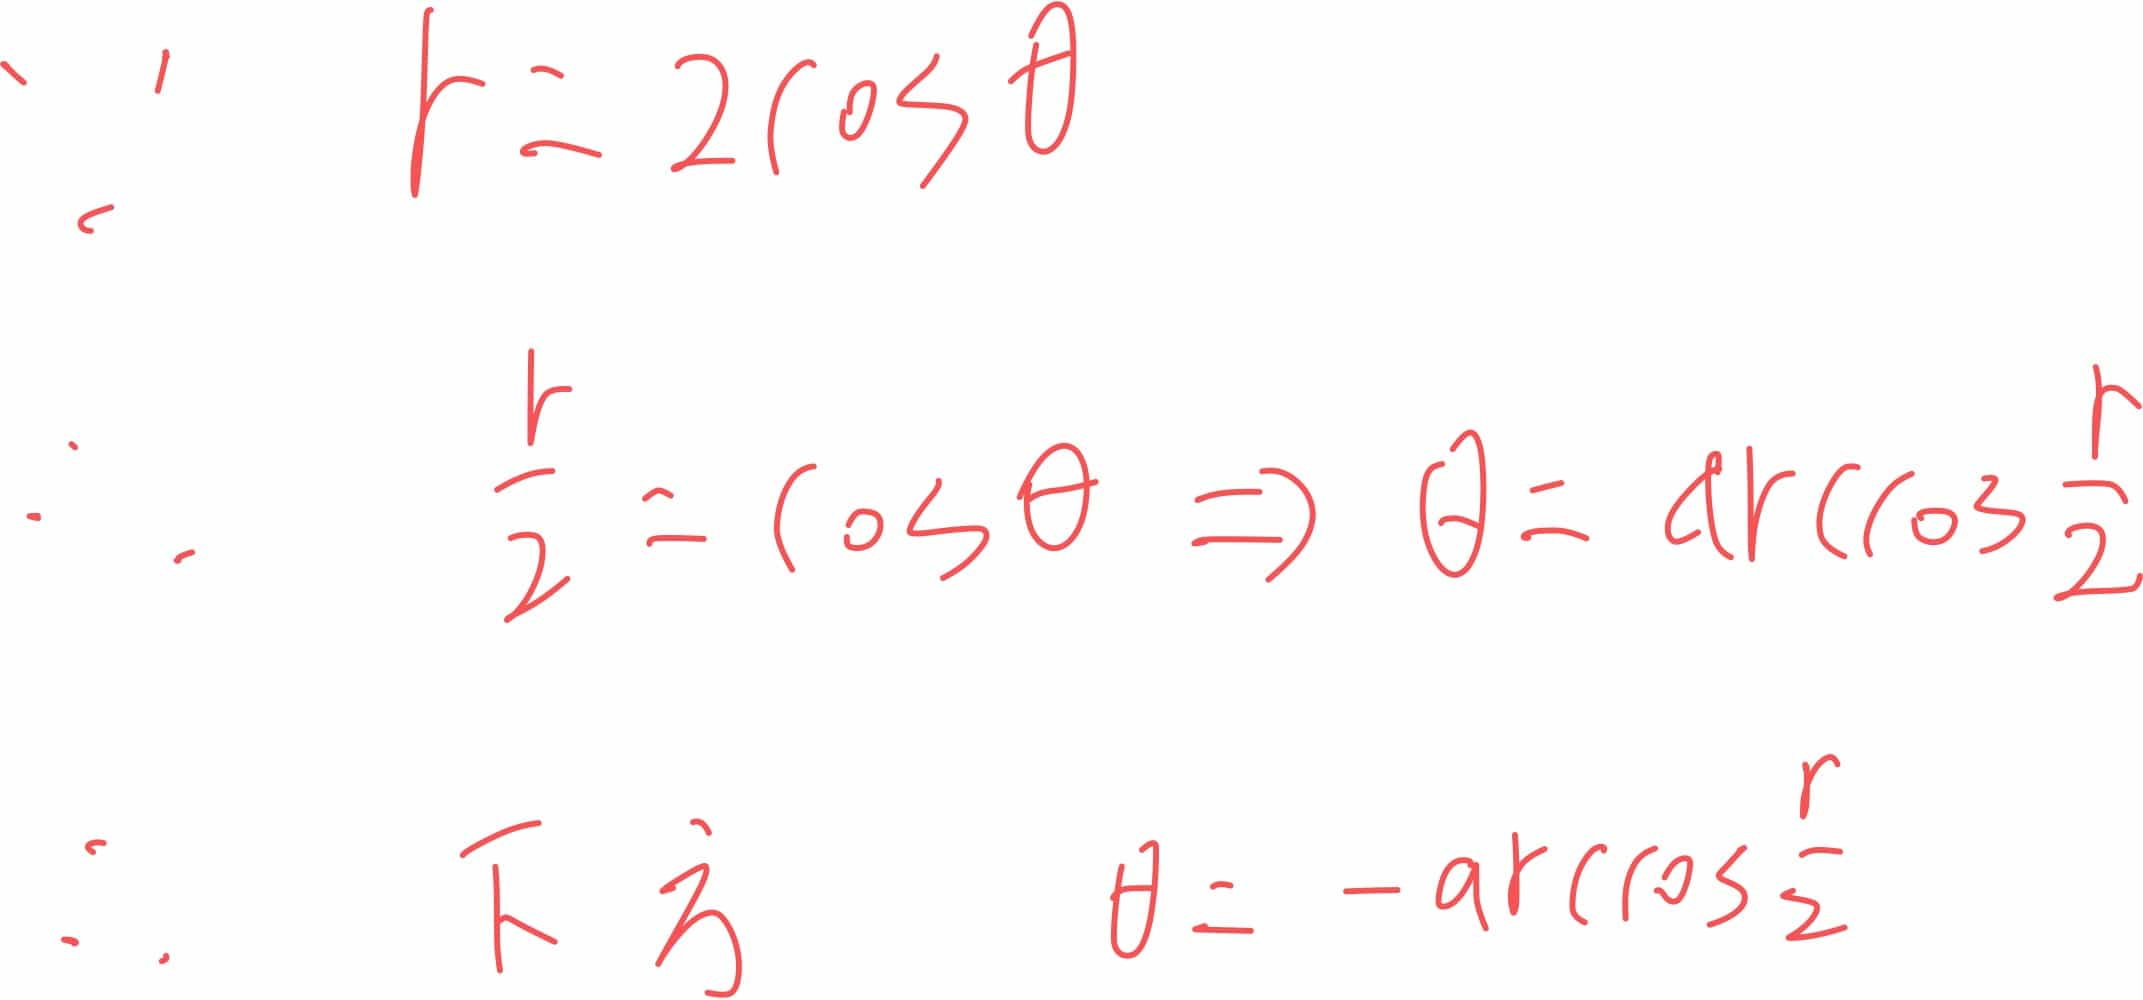 ∵ r = 2cosθ
∴ r/2 = cosθ ⇒ θ = arccos r/2
∴ 下方 θ = -arccos r/2